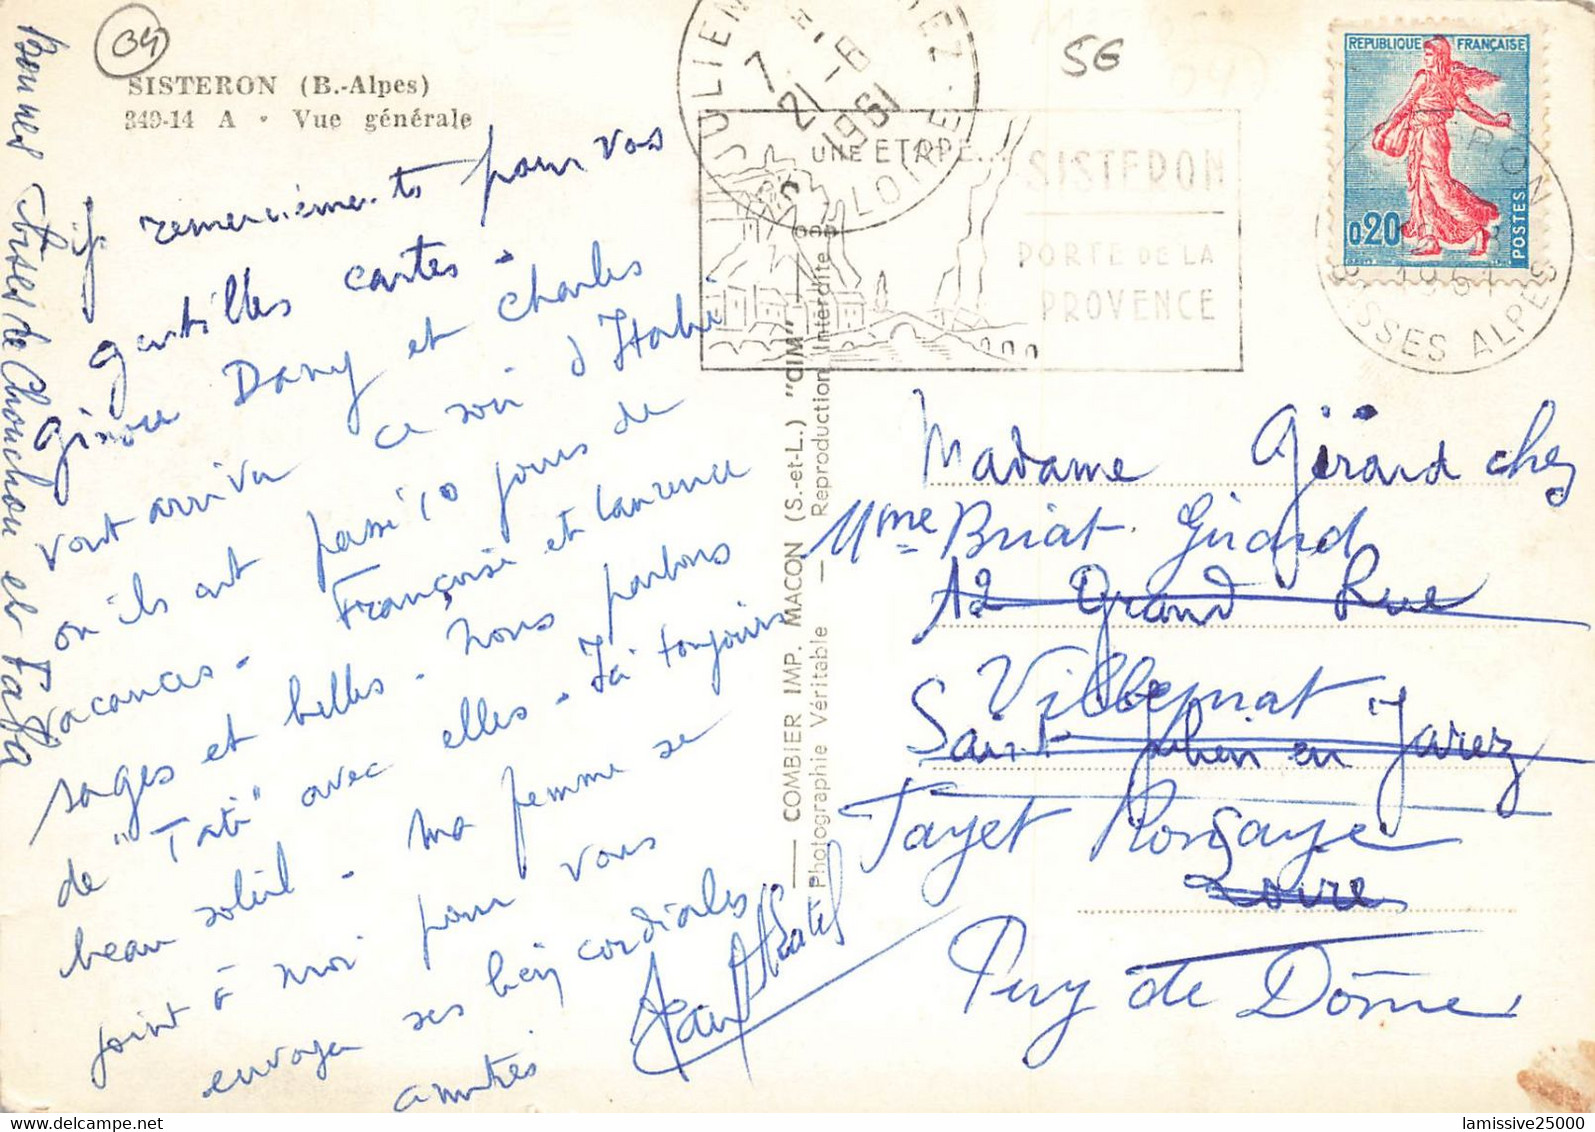 04
SISTERON (B.-Alpes)
349-14 A • Vue générale
Vifs remerciements pour vos
gentilles cartes.
Ginou Dany et Charles
vont arriver ce soir d'Italie
où ils ont passé 10 jours de
vacances. Françoise et Laurence
sages et belles. Nous parlons
de "Tati" avec elles. J'ai toujours
beau soleil. Ma femme se
joint à moi pour vous
envoyer ses bien cordiales
amitiés
Jean
Bonnes bises de Chouchou et
— COMBIER IMP. MACON (S.-et-L.) "CIM" —
Photographie Véritable — Reproduction Interdite
7
21-8
1961
LOIRE
UNE ETAPE...
SISTERON
PORTE DE LA
PROVENCE
56
REPUBLIQUE FRANÇAISE
0,20
POSTES
1961
BASSES ALPES
Madame Gérard chez
Mme Briat. Girard
12 Grand Rue
Villeprat
Saint Julien en Jarez
Fayet Ronsaye
Loire
Puy de Dôme
lamissive25000